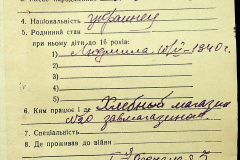 4. Національність украинец
5. Родинний стан
при ньому діти до 16 років:
1) Людмила 10/IV – 1940 г.
2)
3)
4)
5)
6. Ким працює і де Хлебный магазин
№20 завмагазином
7. Спеціяльність
8. Де проживав до війни